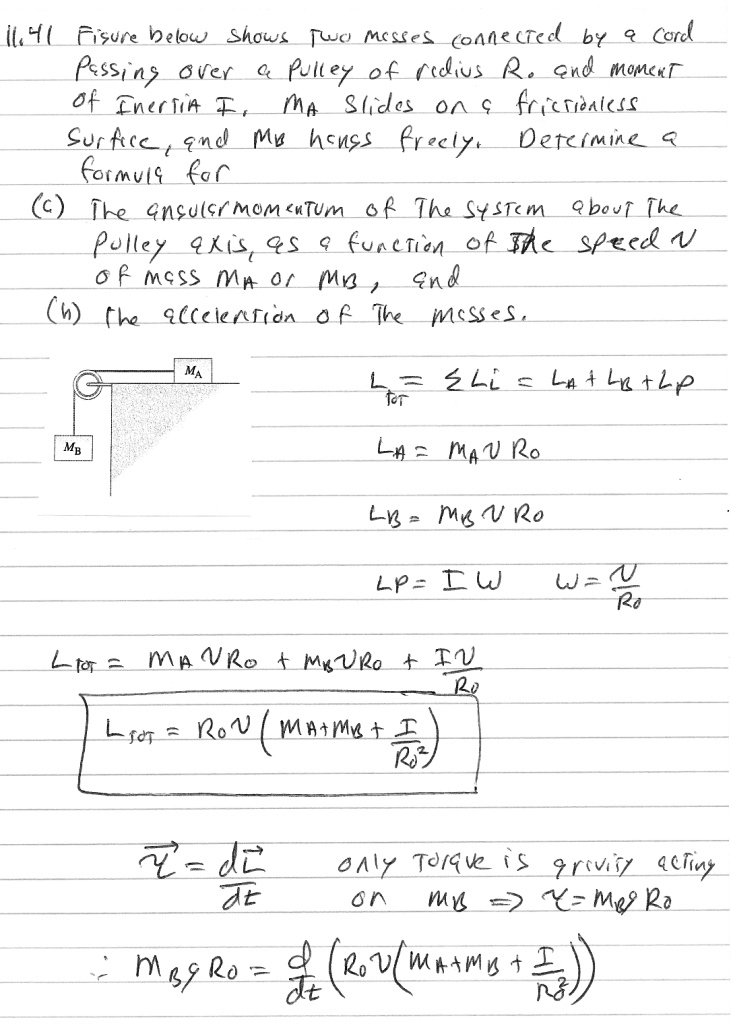 11.41 Figure below shows Two masses connected by a cord
Passing over a Pulley of radius R₀ and moment
of Inertia I. MA Slides on a frictionless
Surface, and MB hangs freely. Determine a
formula for
(a) The angular momentum of The system about The
Pulley axis, as a function of The speed v
of mass MA or MB, and
(b) The acceleration of The masses.
MA
MB
L_TOT = ΣLi = LA + LB + LP
LA = MA v R₀
LB = MB v R₀
LP = I ω    ω = v/R₀
L_TOT = MA v R₀ + MB v R₀ + Iv/R₀
L_TOT = R₀v (MA+MB + I/R₀²)
τ⃗ = dL⃗/dt    only Torque is gravity acting
on MB ⇒ τ = MBg R₀
∴ MBg R₀ = d/dt (R₀v(MA+MB + I/R₀²))